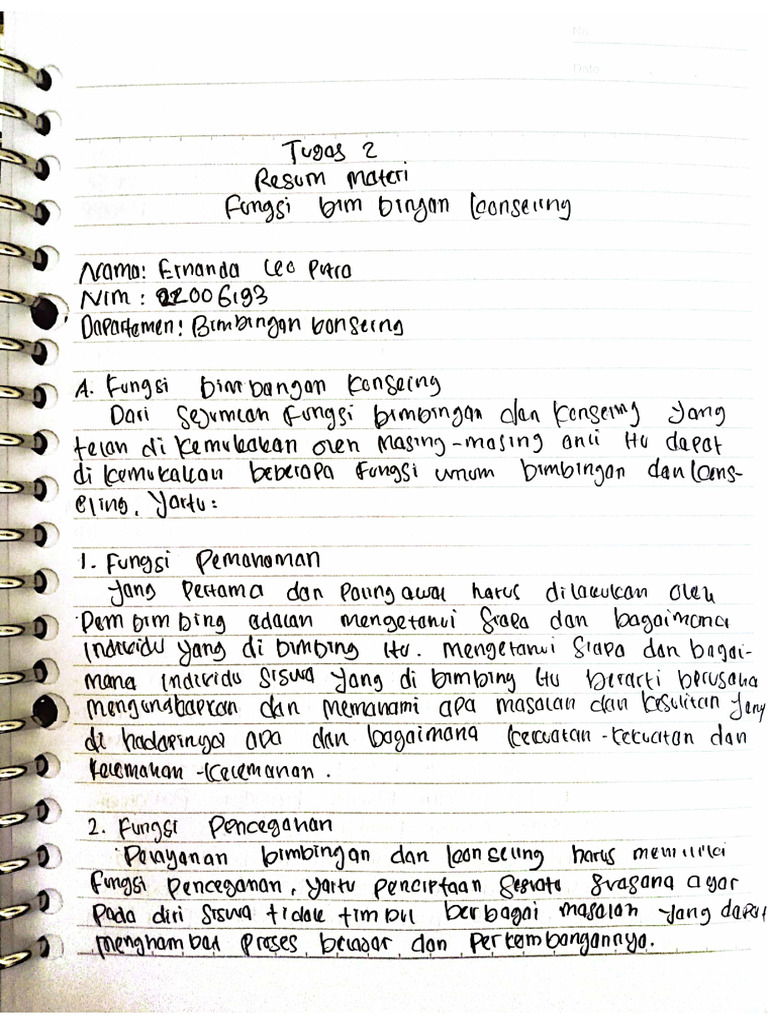 No
Date
Tugas 2
Resum materi
Fungsi bimbingan konseling
Nama: Ernanda Leo Putra
NIM : 22006193
Dapartemen: Bimbingan konseling
A. Fungsi bimbangan konseling
Dari sejumlah fungsi bimbingan dan konseling yang
telah di kemukakan oleh masing-masing ahli itu dapat
di kemukakan beberapa fungsi umum bimbingan dan kons-
eling, yaitu:
1. Fungsi Pemahaman
Yang pertama dan paling awal harus dilakukan oleh
Pembimbing adalah mengetahui siapa dan bagaimana
individu yang di bimbing itu. mengetahui siapa dan bagai-
mana individu siswa yang di bimbing itu berarti berusaha
mengungkapkan dan memahami apa masalah dan kesulitan yang
di hadapinya apa dan bagaimana kekuatan-kekuatan dan
kelemahan-kelemahan.
2. Fungsi Pencegahan
Pelayanan bimbingan dan konseling harus memiliki
fungsi pencegahan, yaitu penciptaan suasana agar
pada diri siswa tidak timbul berbagai masalah yang dapat
menghambat proses belajar dan perkembangannya.